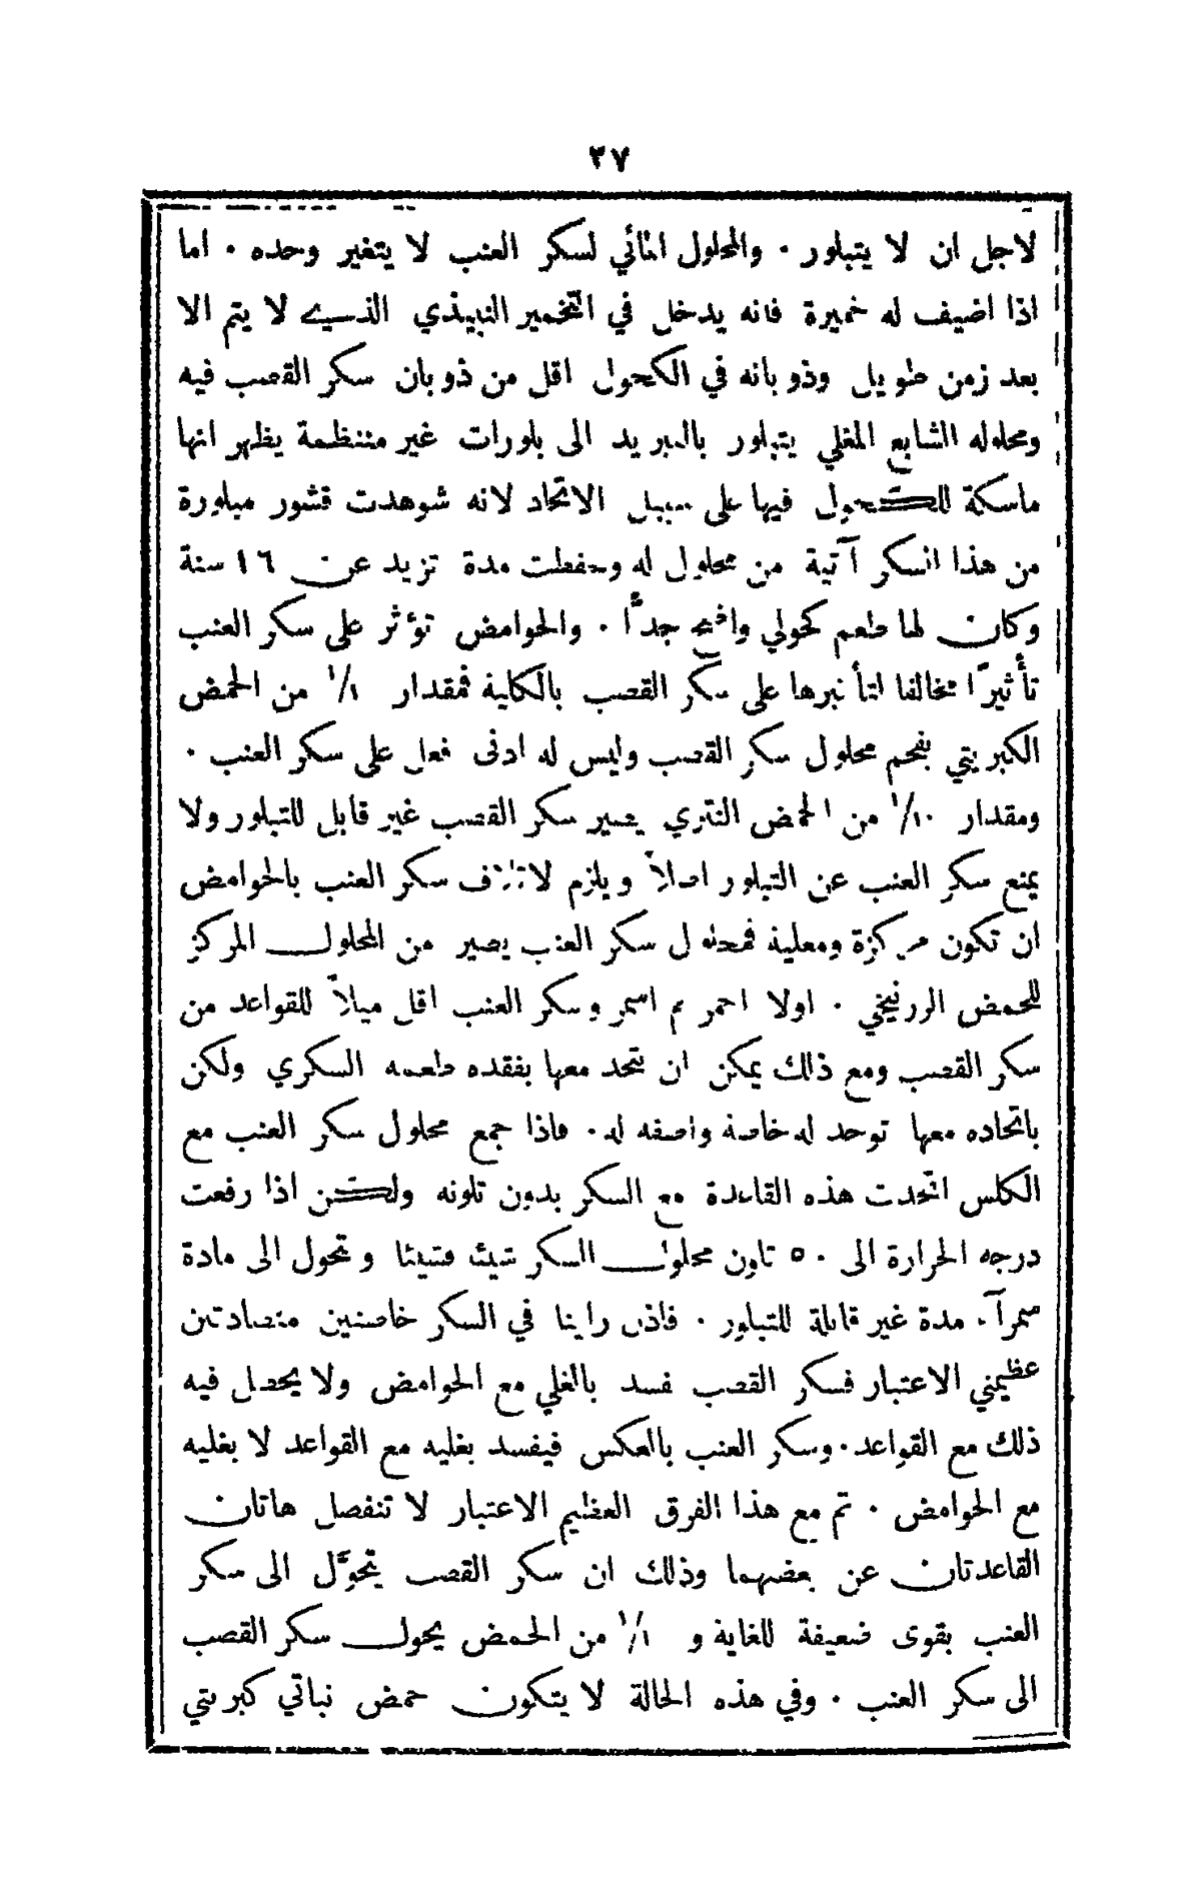 ٢٧
لاجل ان لا يتبلور · والمحلول المائي لسكر العنب لا يتغير وحده · اما
اذا اضيف له خميرة فانه يدخل في التخمير النبيذي الذي لا يتم الا
بعد زمن طويل وذوبانه في الكحول اقل من ذوبان سكر القصب فيه
ومحلوله الشابع المغلي يتبلور بالتبريد الى بلورات غير منتظمة يظهر انها
ماسكة للكحول فيها على سبيل الاتحاد لانه شوهدت قشور مبلورة
من هذا السكر آتية من محلول له وحفظت مدة تزيد عن ١٦ سنة
وكان لها طعم كحولي واضح جدًّا · والحوامض تؤثر على سكر العنب
تأثيرًا مخالفا لتأثيرها على سكر القصب بالكلية فمقدار ١/١ من الحمض
الكبريتي يفحم محلول سكر القصب وليس له ادنى فعل على سكر العنب ·
ومقدار ١/١٠ من الحمض النتري يصير سكر القصب غير قابل للتبلور ولا
يمنع سكر العنب عن التبلور اصلاً ويلزم لاتلاف سكر العنب بالحوامض
ان تكون مركزة ومغلية فمحلول سكر العنب يصير من المحلول المركز
للحمض الزرنيخي · اولا احمر ثم اسمر وسكر العنب اقل ميلاً للقواعد من
سكر القصب ومع ذلك يمكن ان تتحد معها بفقده طعمه السكري ولكن
باتحاده معها توحد له خاصة واصفه له · فاذا جمع محلول سكر العنب مع
الكلس اتّحدت هذه القاعدة مع السكر بدون تلونه ولكن اذا رفعت
درجه الحرارة الى ٥٠ تلون محلول السكر شيئا فشيئا وتحول الى مادة
سمرآء مدة غير قابلة للتبلور · فاذن راينا في السكر خاصتين متضادتين
عظيمتي الاعتبار فسكر القصب نفسد بالغلي مع الحوامض ولا يحصل فيه
ذلك مع القواعد · وسكر العنب بالعكس فيفسد بغليه مع القواعد لا بغليه
مع الحوامض · ثم مع هذا الفرق العظيم الاعتبار لا تنفصل هاتان
القاعدتان عن بعضهما وذلك ان سكر القصب يتحوَّل الى سكر
العنب بقوى ضعيفة للغاية و ١/١ من الحمض يحول سكر القصب
الى سكر العنب · وفي هذه الحالة لا يتكون حمض نباتي كبريتي